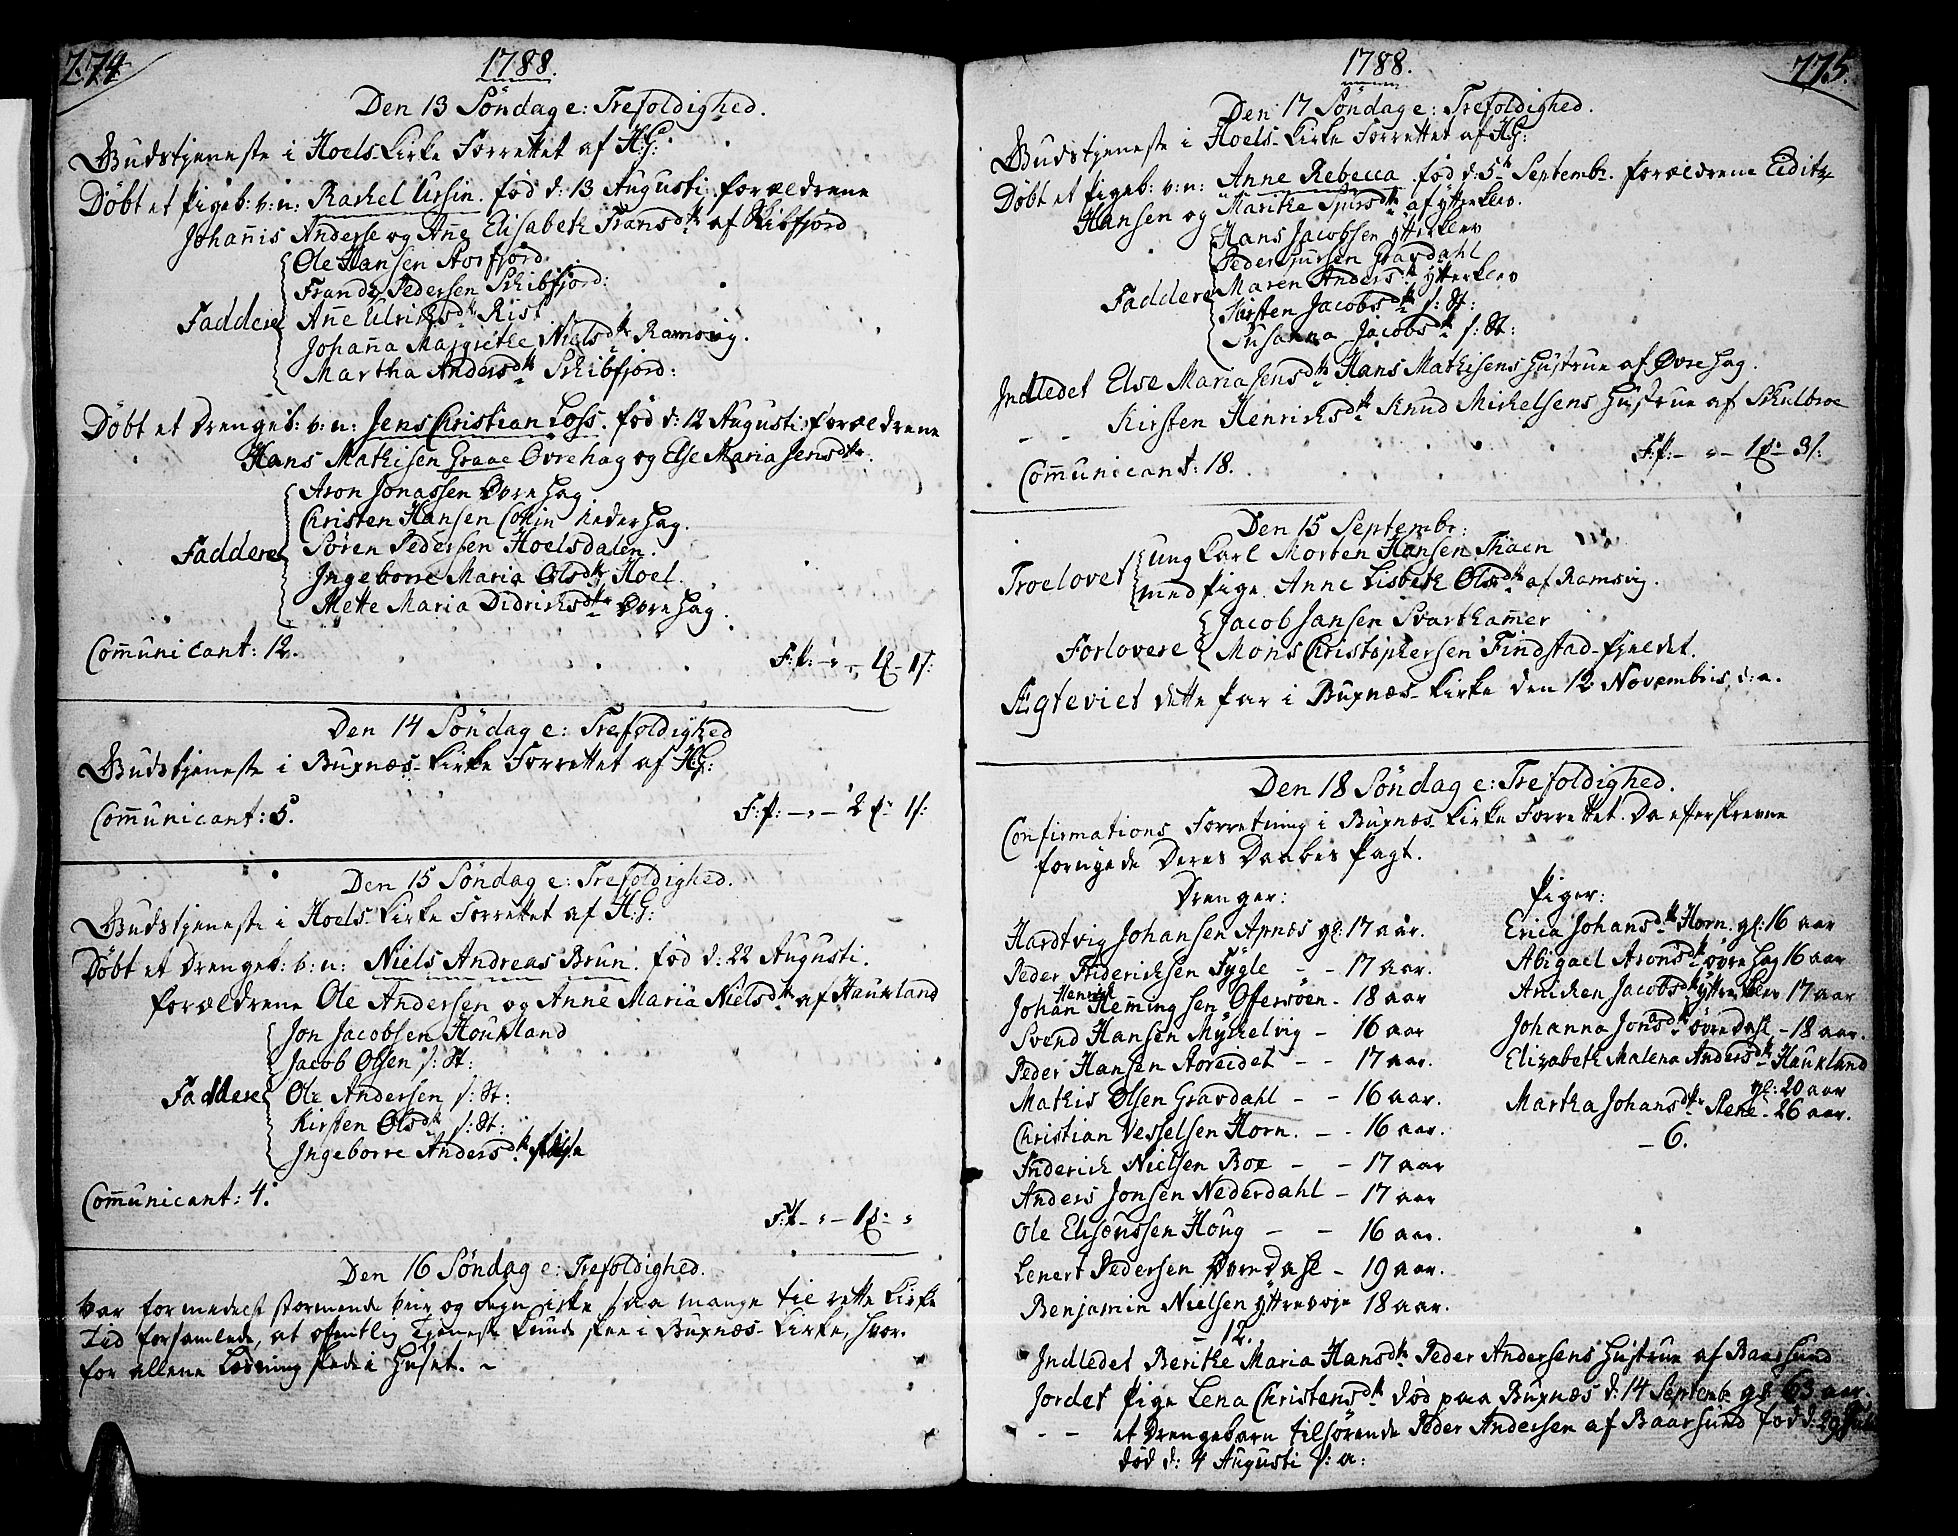 774
1788.
Den 13 Söndag e: Trefoldighed.
Gudstjeneste i Hoels Kirke Forrettet af H:G:
Döbt et Pigeb: v: n: Rachel Ursin. fød d: 13 Augusti. forældrene
Johan̄is Anderse og An̄e Elisabeth Fransdtr af Skibfjord
Ole Hansen Aosfjord.
Frandz Pedersen Schibfjord:
Faddere An̄e Ulrichsdtr Rist
Johan̄a Margrethe Nielsdtr Ramsvig.
Martha Andersdtr Schibfjord:
Döbt et Drengeb: v: n: Jens Christian Loss. fød d: 12 Augusti: forældrene
Hans Mathisen Graae Ovrehag og Else Maria Jensdtr.
Aron Jonassen Ovrehag
Christen Hansen Nederhag.
Faddere Sören Pedersen Hoelsdalen.
Ingeborre Maria Olsdtr Hoel.
Mette Maria Didrichsdtr Ovrehag.
Com̄unicant: 12.
F:p: - " - 1 - 1 s:
Den 14 Söndag e: Trefoldighed
Gudstjeneste i Buxnæs Kirke Forrettet af H:G:
Com̄unicant: 5.
F:p: - " - 2 - 1 s:
Den 15 Söndag e: Trefoldighed.
Gudstjeneste i Hoels Kirke Forrettet af H:G:
Döbt et Drengeb: v: n: Niels Andreas Brun. fød d: 22 Augusti.
forældrene Ole Andersen og Anne Maria Nielsdtr af Haukland
Jon Jacobsen Houkland
Jacob Olsen s: St:
Faddere Ole Andersen s: St:
Kirsten Olsdtr s: St:
Ingeborre Andersdtr
Com̄unicant: 4.
F:p: - " - 1 - "
Den 16 Söndag e: Trefoldighed.
var formedelst stormende veir og Regn icke saa mange til rette Kirke
tid forsamlede, at ofentlig Tjeneste kunde skee i Buxnæs Kirke, hvor-
for allene Læsning skede i Huset. ~
775.
1788.
Den 17 Söndag e: Trefoldighed.
Gudstjeneste i Hoels Kirke Forrettet af H:G:
Döbt et Pigeb: v: n: Anne Rebecca fød d: 5te Septembr. forældrene Eidits
Hansen og Marithe Spirsdtr af ytterklev.
Hans Jacobsen ytterklev
Peder Jursen Gravdahl
Faddere Maren Andersdtr ytterklev
Kirsten Jacobsdtr s: St:
Susanna Jacobsdtr s: St:
Indledet Else Maria Jensdtr Hans Mathisens Hustrue af Øvrehag.
- - Kirsten Henrichsdtr Knud Michelsens Hustrue af Skulbroe
F:p: - " - 1 - 3 s:
Com̄unicant: 18.
Den 15 Septembr:
Troelovet ungKarl Morten Hansen Thaen
med Pige Anne Lisbeth Olsdtr af Ramsvig.
Forlovere Jacob Jansen Svartham̄er
Mons Christophersen Findstad-fjeldet.
Ægteviet dette Par i Buxnæs Kirke den 12 Novembris. s: a.
Den 18 Söndag e: Trefoldighed.
Confirmations Forretning i Buxnæs Kirke Forrettet. Da efterskrevne
fornyede Deres Daabes Pagt.
Drenger:
Hardtvig Johansen Apnæs gl: 17 aar.
Peder Friderichsen Fÿgle - - 17 aar.
Johan Henrich Hem̄ingsen Offersøen - 18 aar
Svend Hansen Myckelvig - 16 aar
Peder Hansen Storeidet - - 17 aar.
Mathis Olsen Gravdahl - - 16 aar.
Christian Vesselsen Horn. - - 16 aar.
Friderich Nielsen Boe - - 17 aar
Anders Jonsen Nederdahl - 17 aar
Ole Elisæussen Houg - - 16 aar.
Lenert Pedersen Øvredahl - 19 aar.
Benjamin Nielsen yttrevoje 18 aar.
- 12.
Piger:
Erica Johansdtr Horn. gl: 16 aar
Abigael Aronsdtr øvrehag 16 aar
Anichen Jacobsdtr ytterklev 17 aar
Johanna Jonsdtr øvredahl - 18 aar.
Elizabeth Malena Andersdtr Haukland
gl: 20 aar
Martha Johansdtr Stene - 26 aar.
- 6.
Indledet Berithe Maria Hansdtr Peder Andersens Hustrue af Baarsund
Jordet Pige Lena Christensdtr død paa Buxnæs d: 14 Septembr gl 63 aar.
- - et Drengebarn tilhørende Peder Andersen af Baarsund fød d: 29 Julii
død d: 4 Augusti s: a: